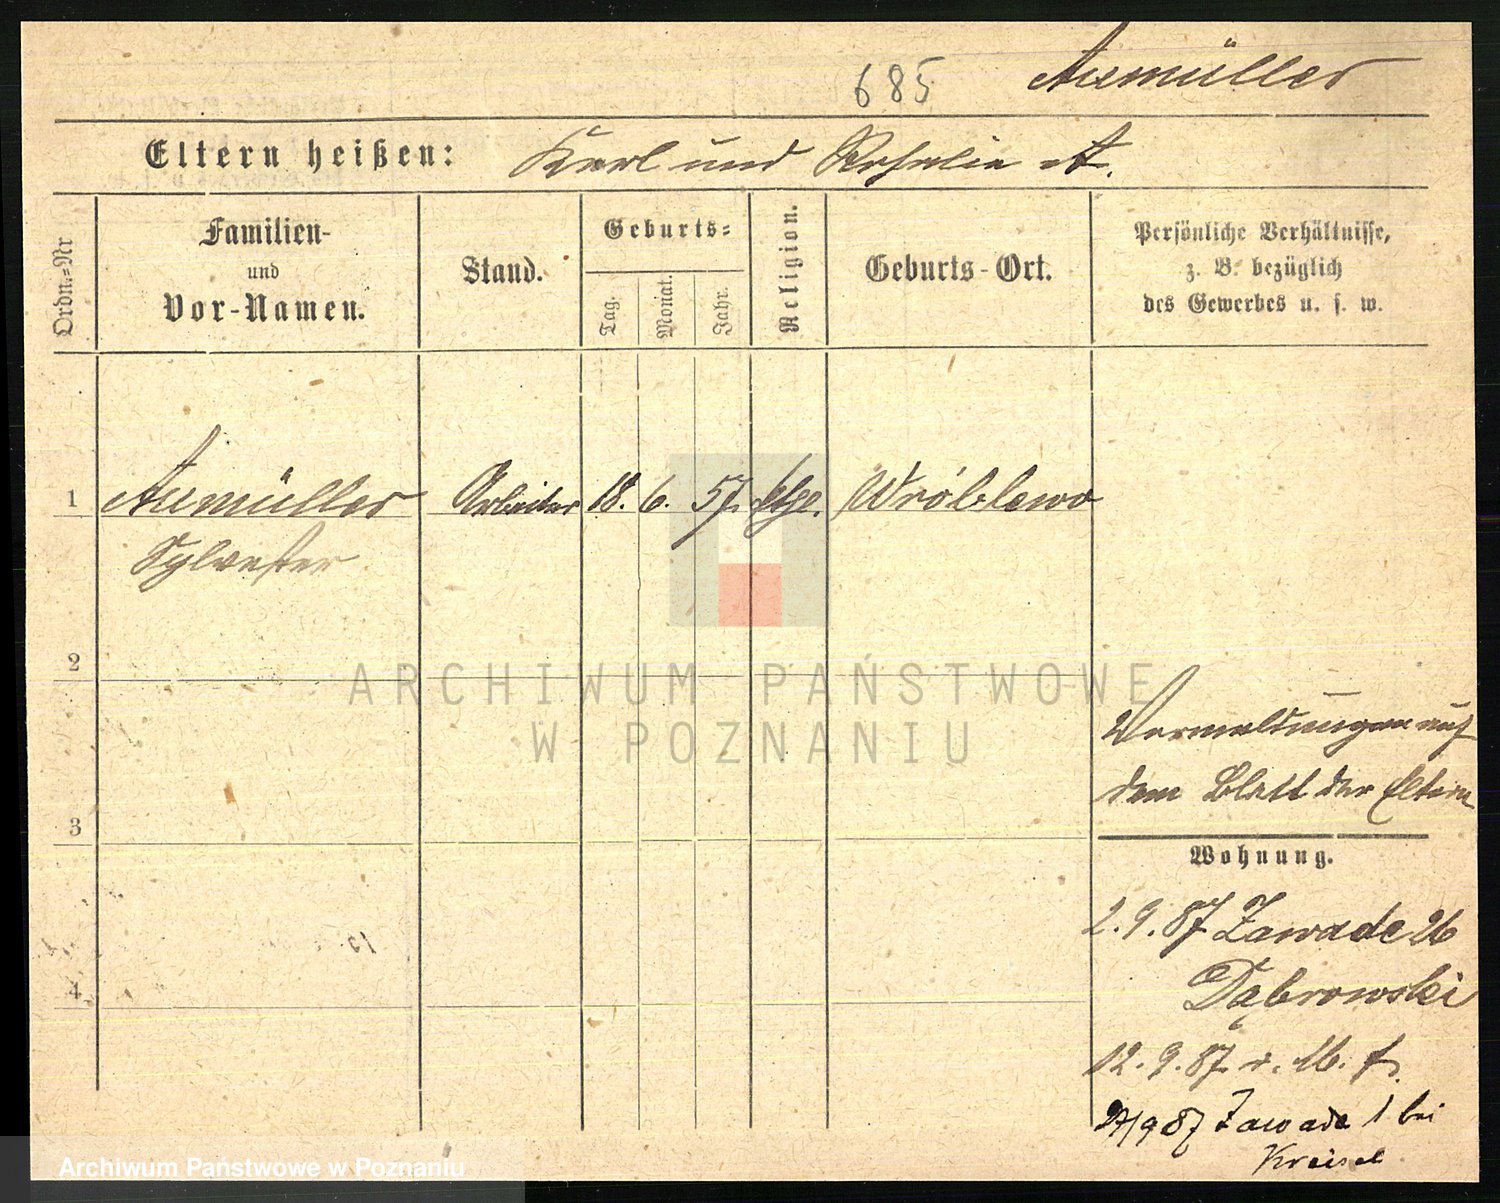 685 Aumüller
Eltern heißen: Karl und Rosalie A.
Ordn.=Nr
Familien-
und
Vor-Namen.
Stand.
Geburts=
Tag.
Monat.
Jahr.
Religion.
Geburts-Ort.
Persönliche Verhältnisse,
z. B. bezüglich
des Gewerbes u. s. w.
1 Aumüller Arbeiter 18. 6. 57. ktgl. Wróblewo
Sylvester
2
3
4
Vermeldungen auf
dem Blatt der Eltern
Wohnung.
2.9.87 Zawade 26
Dąbrowski
12.9.87
27/9 87 Zawade 1 bei
Kreisel
ARCHIWUM PAŃSTWOWE
W POZNANIU
Archiwum Państwowe w Poznaniu